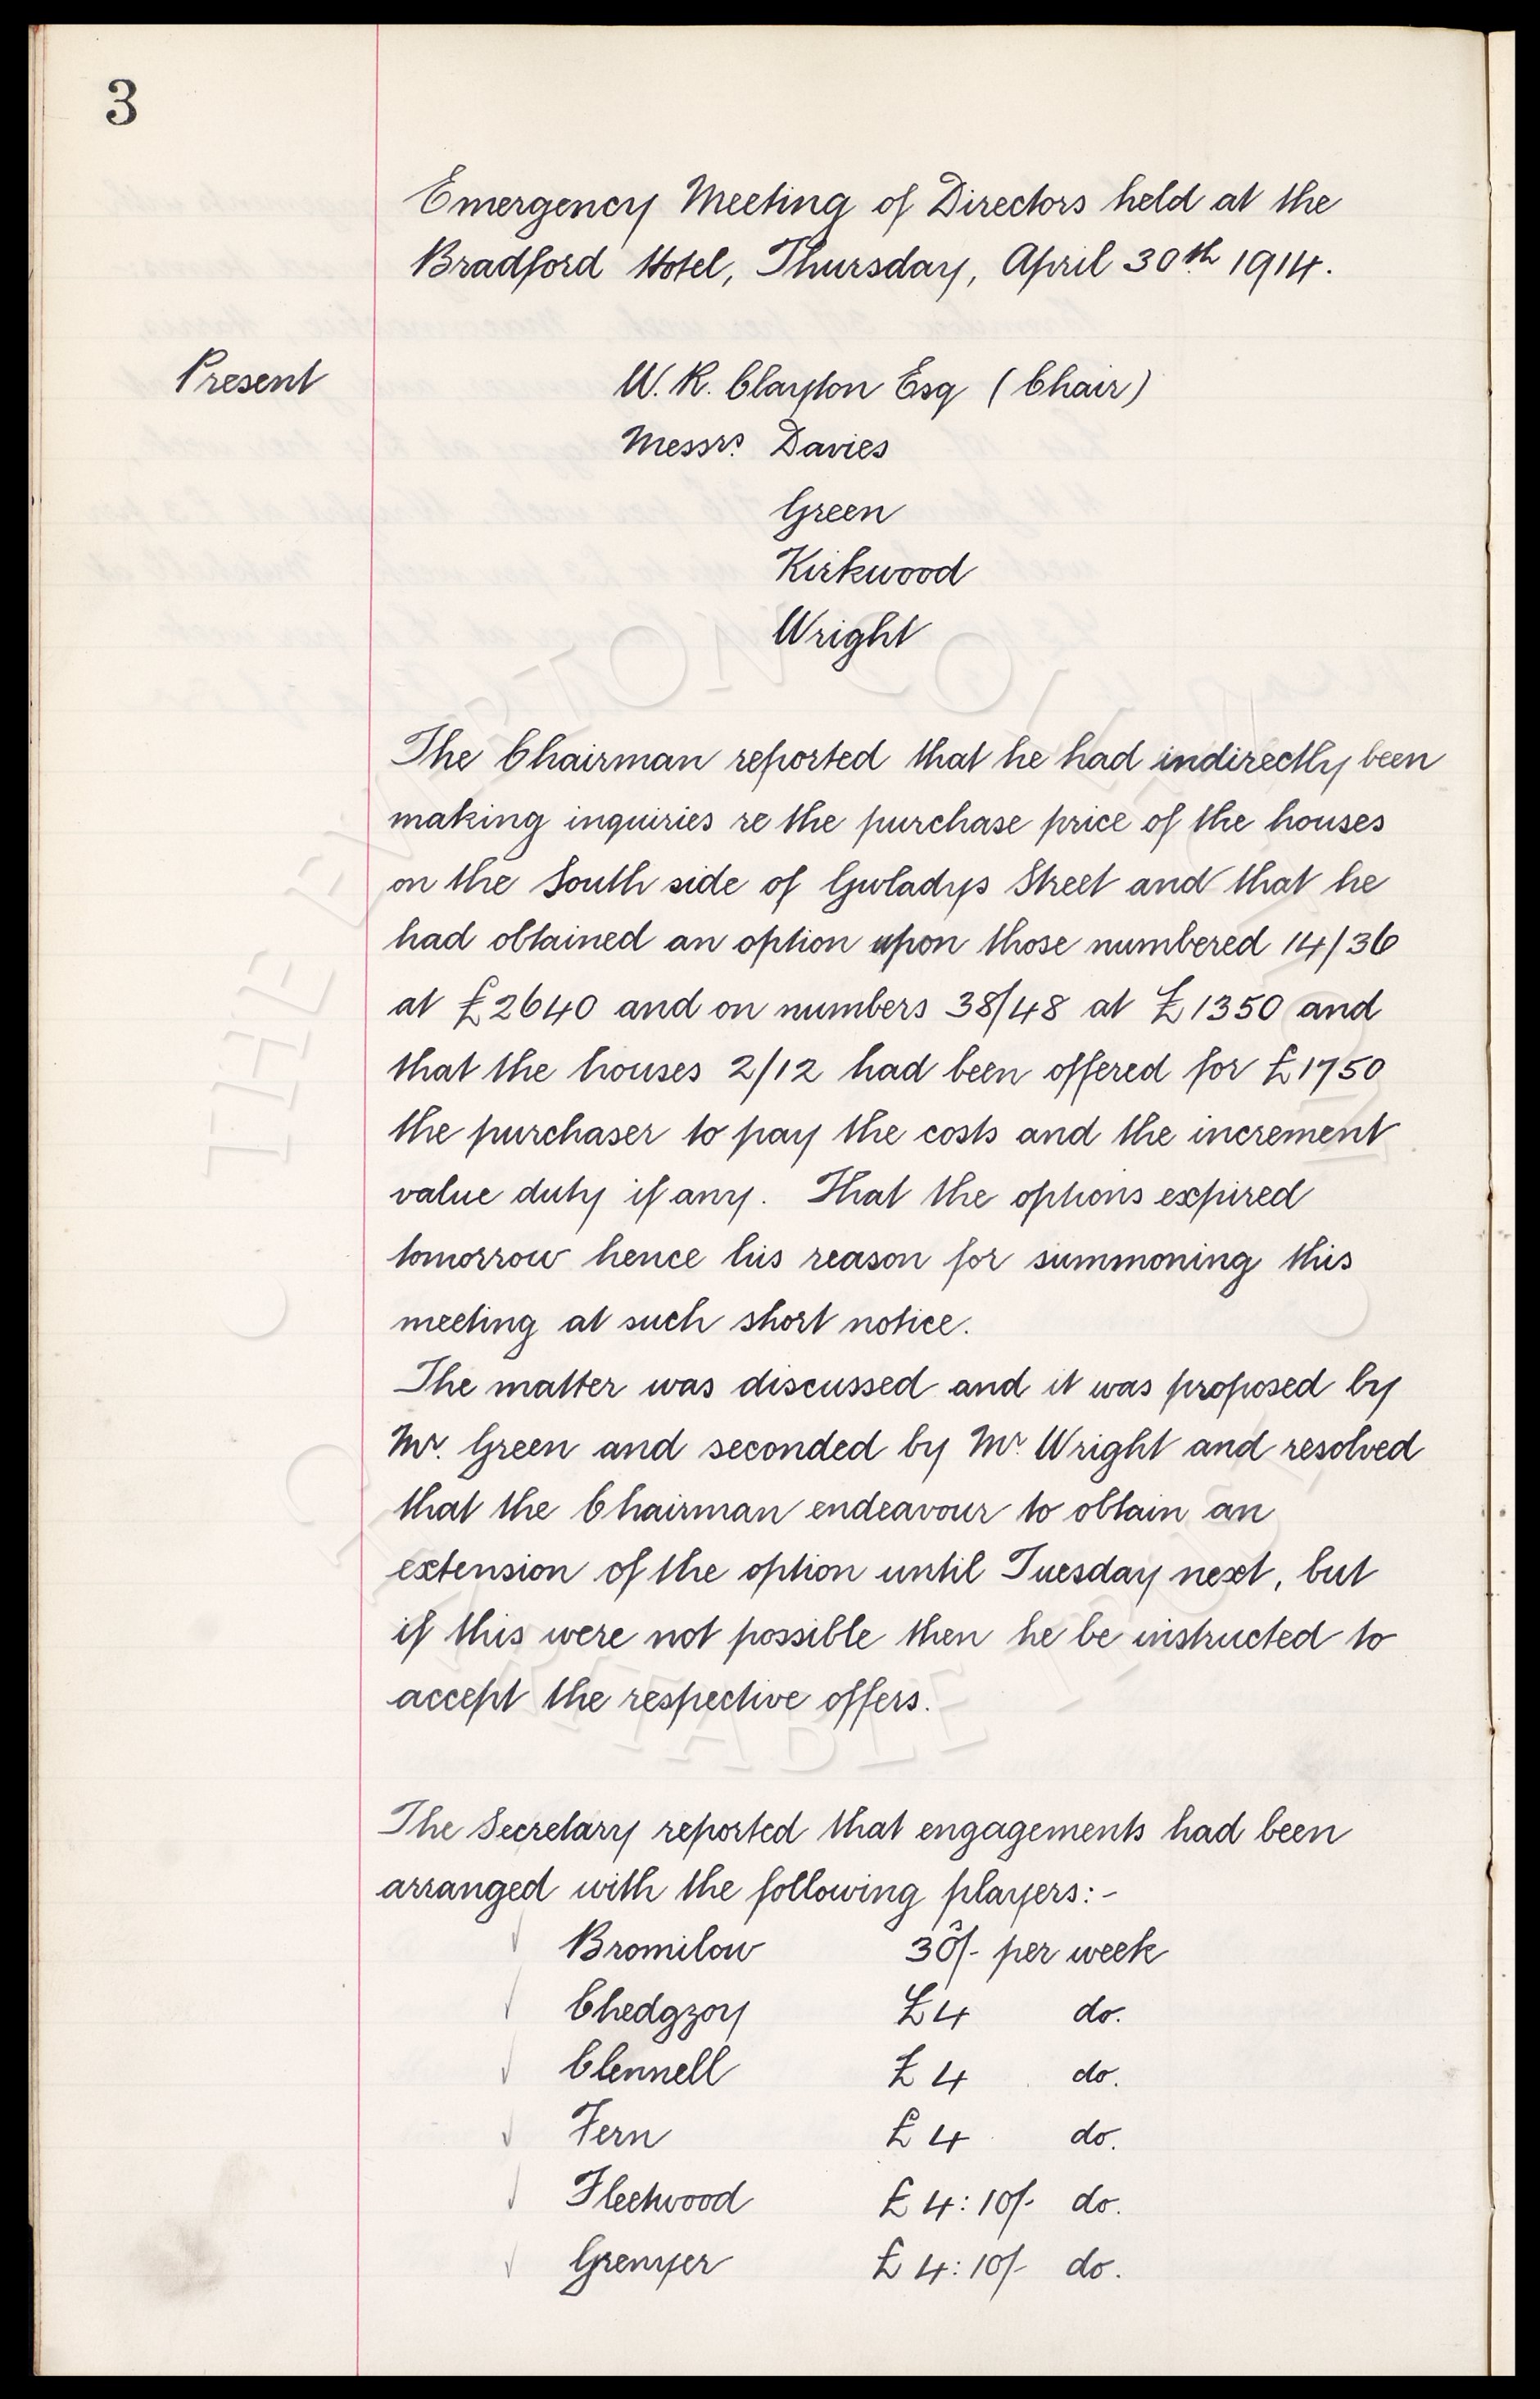 3
Emergency Meeting of Directors held at the
Bradford Hotel, Thursday, April 30th 1914.
Present
W. R. Clayton Esq (Chair)
Messrs. Davies
Green
Kirkwood
Wright
The Chairman reported that he had indirectly been
making inquiries re the purchase price of the houses
on the South side of Gwladys Street and that he
had obtained an option upon those numbered 14/36
at £2640 and on numbers 38/48 at £1350 and
that the houses 2/12 had been offered for £1750
the purchaser to pay the costs and the increment
value duty if any. That the options expired
tomorrow hence his reason for summoning this
meeting at such short notice.
The matter was discussed and it was proposed by
Mr. Green and seconded by Mr. Wright and resolved
that the Chairman endeavour to obtain an
extension of the option until Tuesday next, but
if this were not possible then he be instructed to
accept the respective offers.
The Secretary reported that engagements had been
arranged with the following players:-
Bromilow 30/- per week
Chedgzoy £4 do.
Clennell £4 do.
Fern £4 do.
Fleetwood £4:10/- do.
Grenyer £4:10/- do.